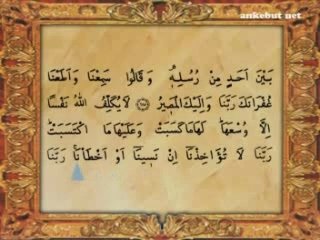 ankebut net
بَيْنَ اَحَدٍ مِنْ رُسُلِهٖ وَقَالُوا سَمِعْنَا وَاَطَعْنَا
غُفْرَانَكَ رَبَّنَا وَاِلَيْكَ الْمَصٖيرُ ﴿٢٨٥﴾ لَا يُكَلِّفُ اللّٰهُ نَفْسًا
اِلَّا وُسْعَهَا لَهَا مَا كَسَبَتْ وَعَلَيْهَا مَا اكْتَسَبَتْ
رَبَّنَا لَا تُؤَاخِذْنَا اِنْ نَسٖينَا اَوْ اَخْطَأْنَا رَبَّنَا